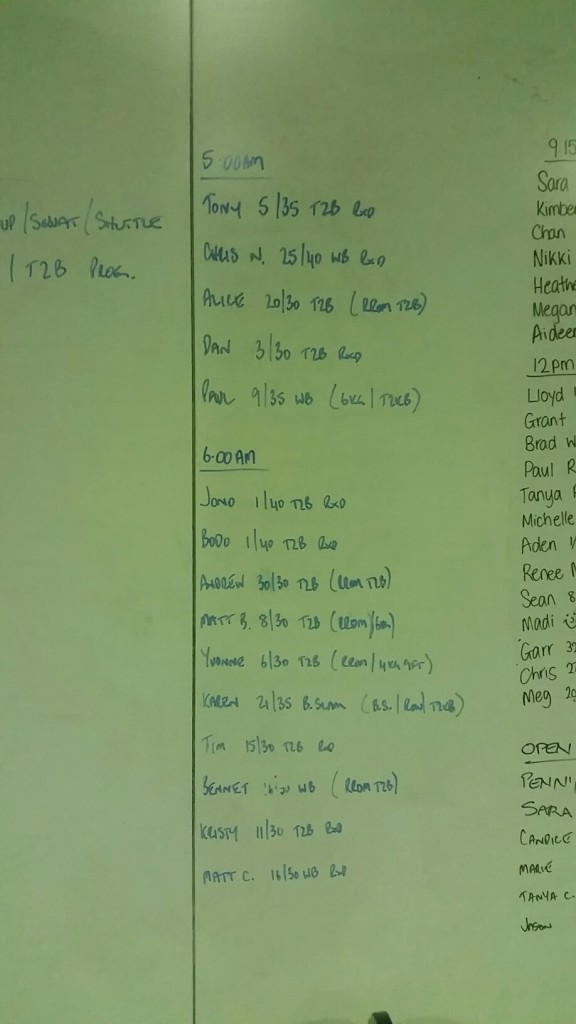 UP/SQUAT/SHUTTLE
/ T2B PROG.
5:00AM
TONY 5/35 T2B RXD
CHRIS N. 25/40 WB RXD
ALICE 20/30 T2B (RROM T2B)
DAN 3/30 T2B RXD
PAUL 9/35 WB (6KG/T2KB)
6:00AM
JONO 1/40 T2B RXD
BODO 1/40 T2B RXD
ANDREW 30/30 T2B (RROM T2B)
MATT B. 8/30 T2B (RROM/6KG)
YVONNE 6/30 T2B (RROM/4KG 9FT)
KAREN 21/35 B.SLAM (B.S./ROW/T2KB)
TIM 15/30 T2B RXD
BENNET WB (RROM T2B)
KRISTY 11/30 T2B RXD
MATT C. 16/30 WB RXD
9.15
Sara
Kimbe
Chan
Nikki
Heath
Megan
Aideen
12pm
Lloyd
Grant
Brad W
Paul R
Tanya
Michelle
Aden
Renee
Sean 8
Madi
Garr 3
Chris 2
Meg 20
OPEN
PENNI
SARA
CANDICE
MARIE
TANYA C.
JASON